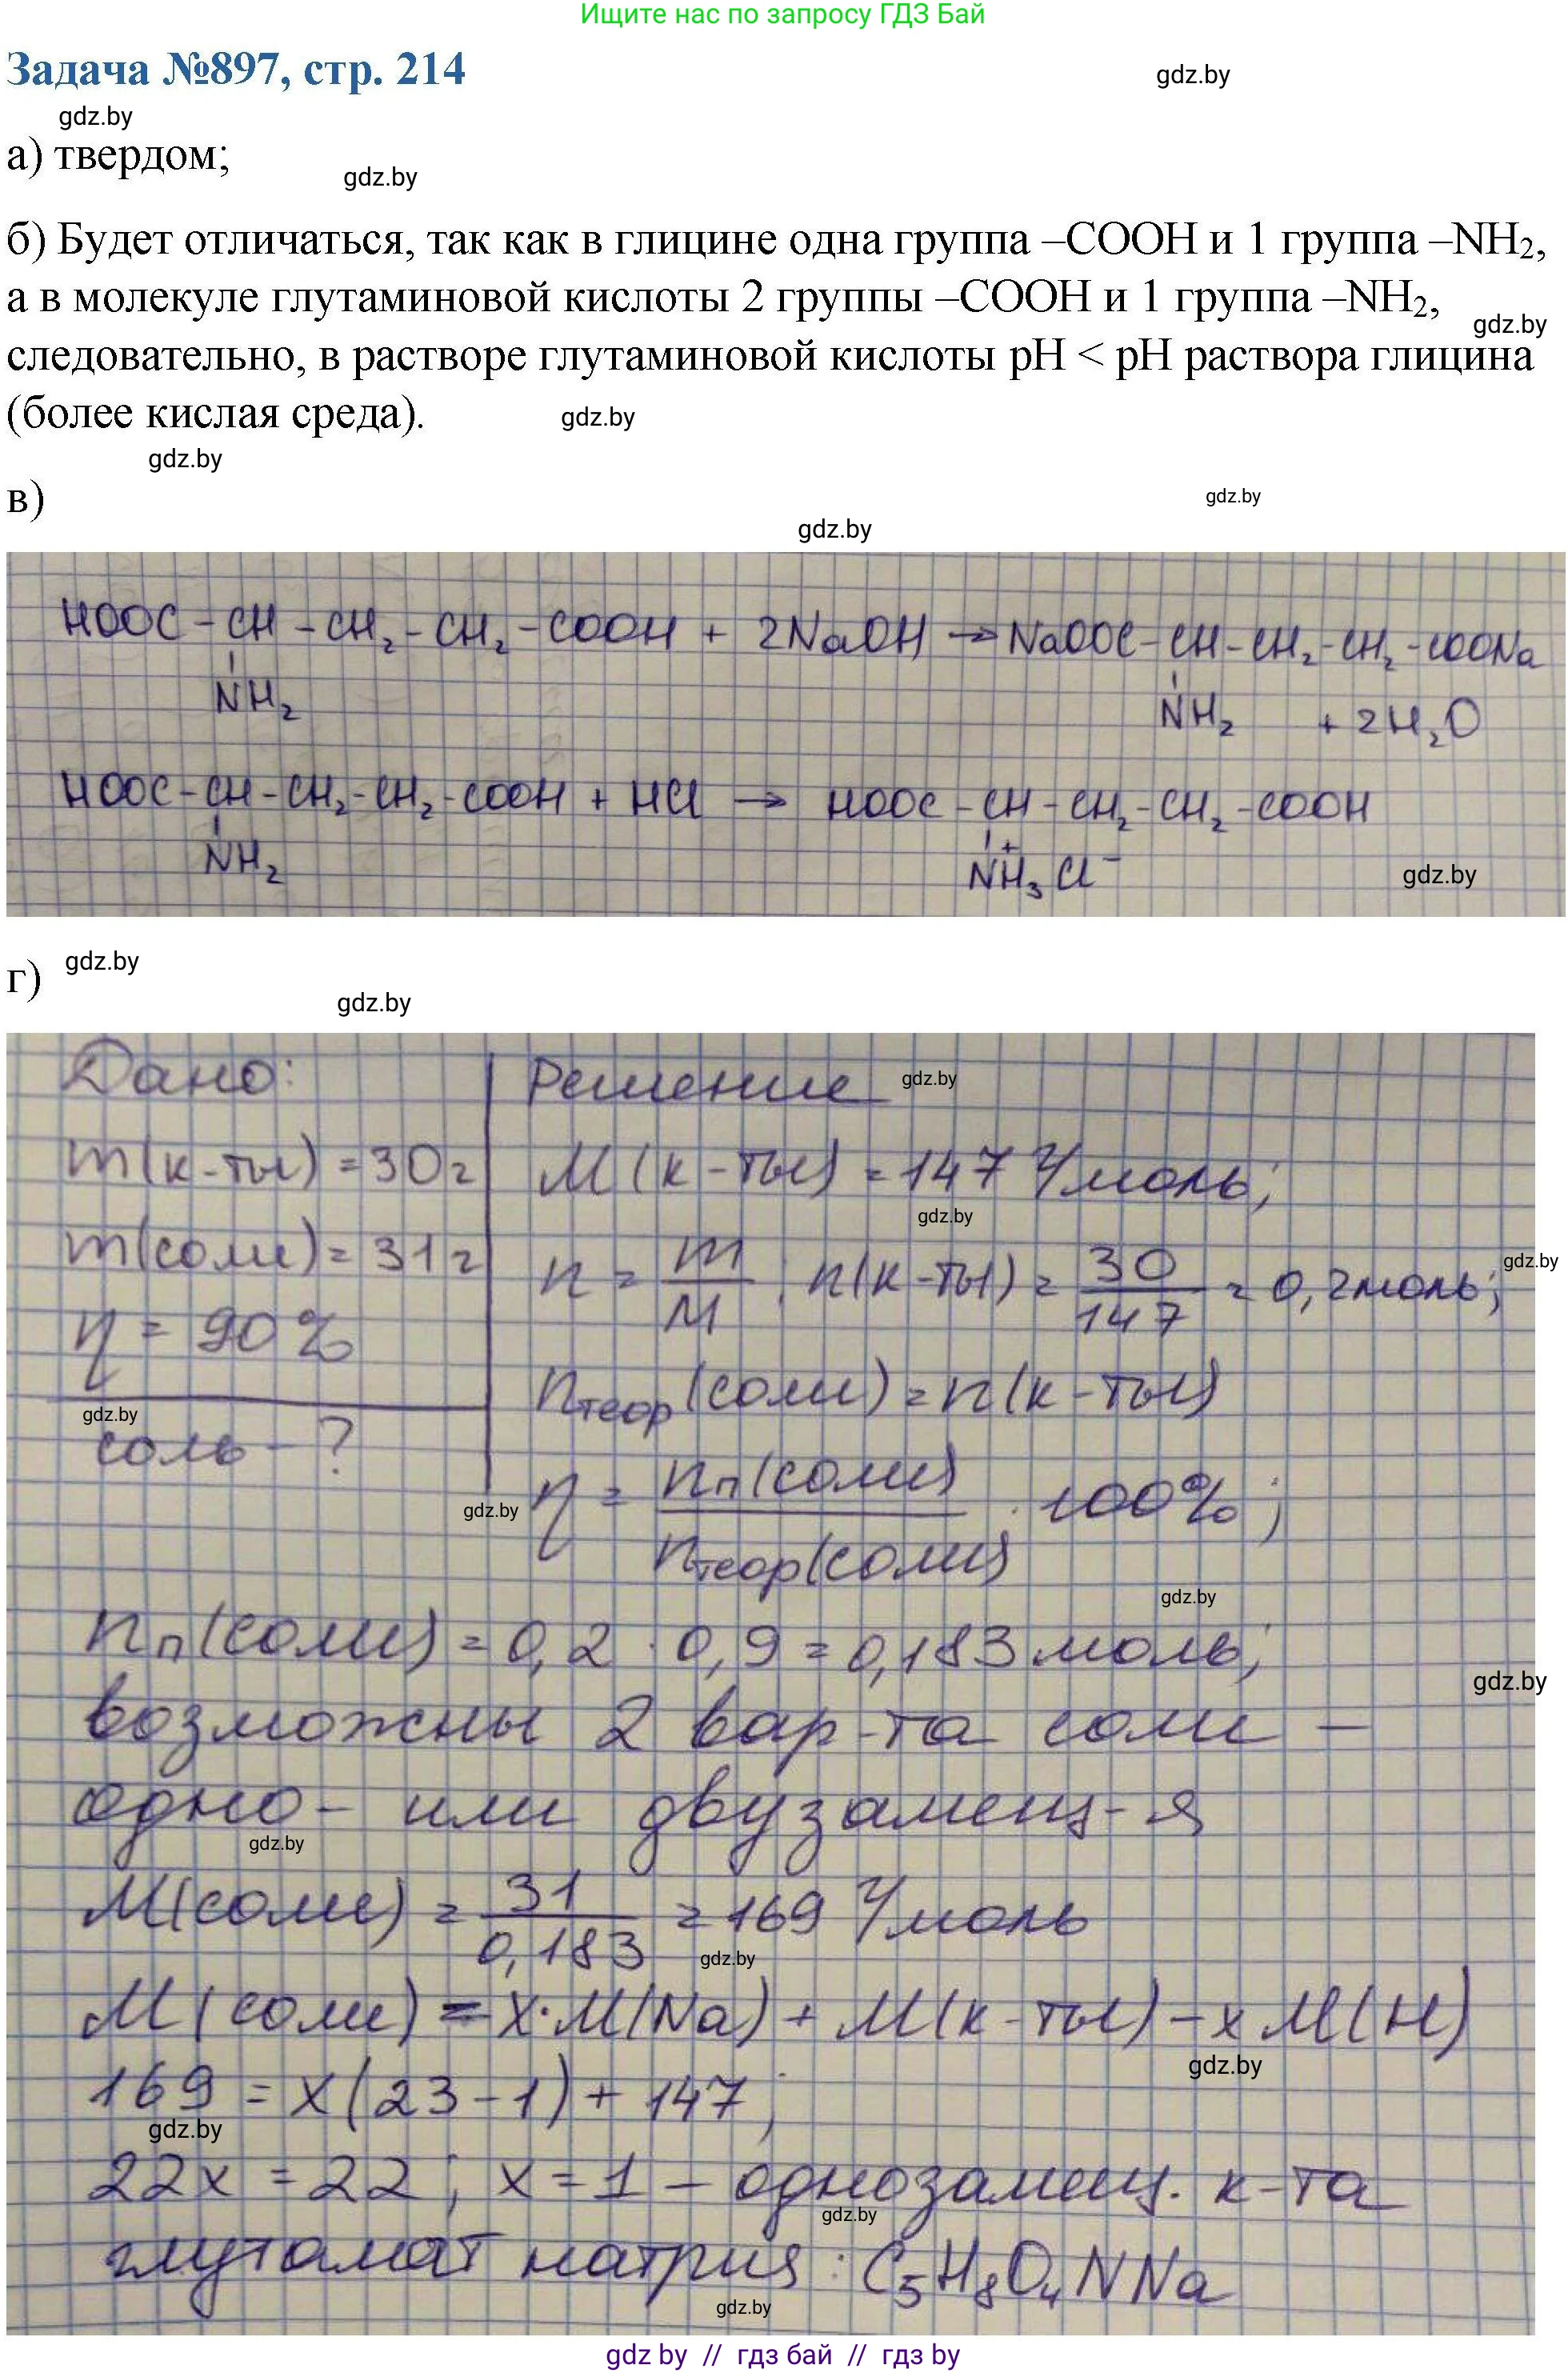 Ищите нас по запросу ГДЗ Бай
Задача №897, стр. 214
gdz.by
gdz.by
а) твердом;
gdz.by
б) Будет отличаться, так как в глицине одна группа –COOH и 1 группа –NH₂,
а в молекуле глутаминовой кислоты 2 группы –COOH и 1 группа –NH₂,
gdz.by
следовательно, в растворе глутаминовой кислоты pH < pH раствора глицина
(более кислая среда).
gdz.by
gdz.by
в)
gdz.by
gdz.by
HOOC – CH – CH₂ – CH₂ – COOH + 2NaOH → NaOOC – CH – CH₂ – CH₂ – COONa
NH₂ NH₂ + 2H₂O
HOOC – CH – CH₂ – CH₂ – COOH + HCl → HOOC – CH – CH₂ – CH₂ – COOH
NH₂ NH₃⁺Cl⁻
gdz.by
г)
gdz.by
gdz.by
Дано:
m(к-ты) = 30г
m(соли) = 31г
η = 90%
gdz.by
соль – ?
Решение
gdz.by
M(к-ты) = 147 г/моль;
gdz.by
n = m/M ; n(к-ты) = 30/147 = 0,2моль;
gdz.by
nтеор(соли) = n(к-ты)
η = nп(соли)/nтеор(соли) · 100%;
gdz.by
gdz.by
nп(соли) = 0,2 · 0,9 = 0,183 моль;
gdz.by
возможны 2 вар-та соли –
одно- или двузамещ-я
gdz.by
M(соли) = 31/0,183 = 169 г/моль
gdz.by
M(соли) = x·M(Na) + M(к-ты) – xM(H)
gdz.by
169 = x(23-1) + 147;
gdz.by
22x = 22; x = 1 – однозамещ. к-та
gdz.by
глутамат натрия: C₅H₈O₄NNa
gdz.by
gdz by // гдз бай // гдз by